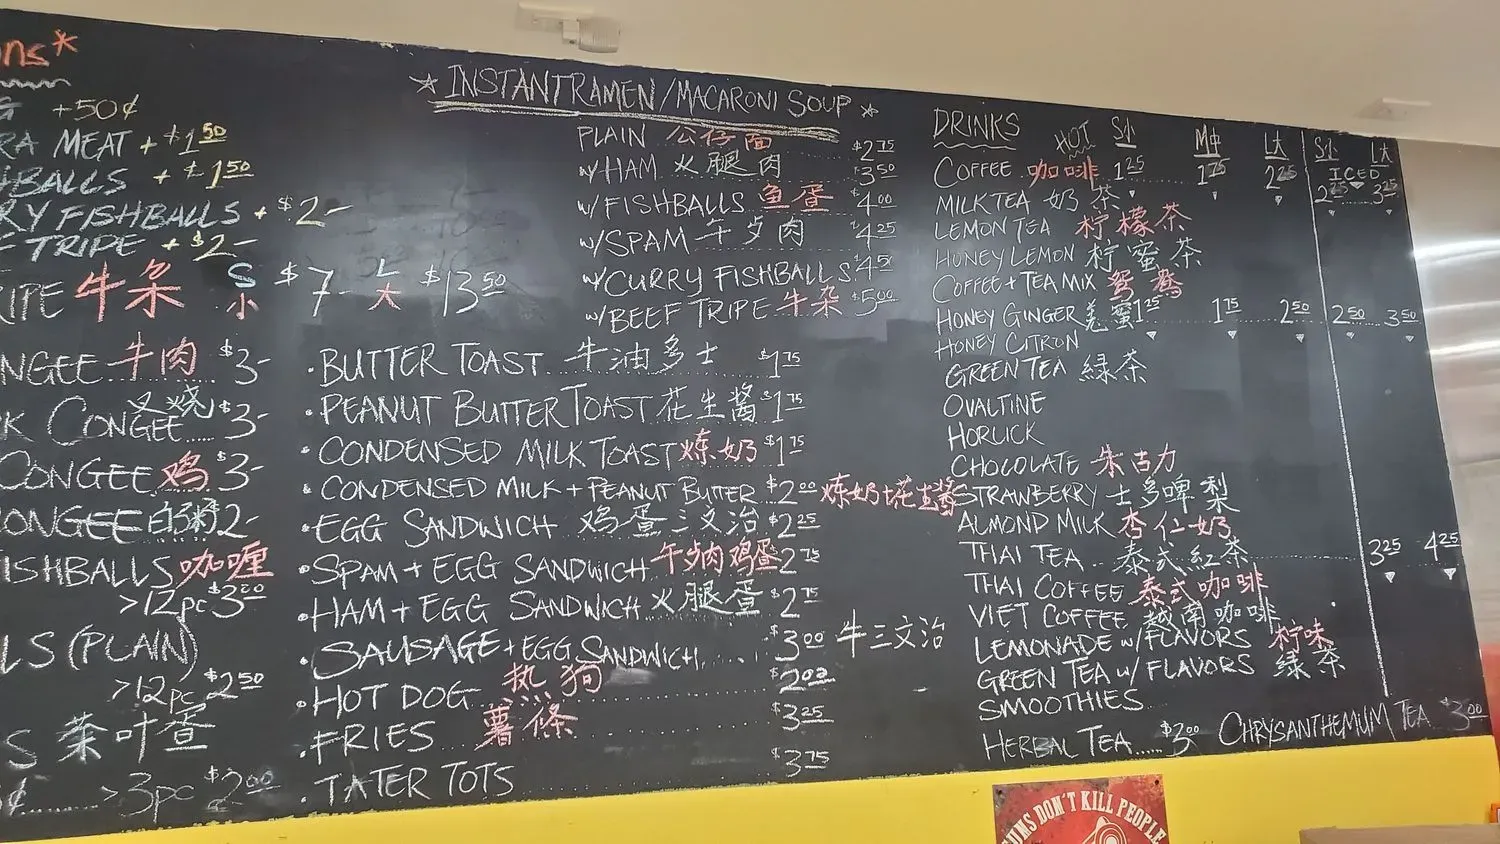 ons*
G +50¢
RA MEAT +$1.50
HBALLS +$1.50
RY FISHBALLS +$2-
F TRIPE +$2-
RIPE 牛杂 S小 $7- L大 $13.50
NGEE 牛肉 $3-
K CONGEE 叉烧 $3-
CONGEE 鸡 $3-
CONGEE 白粥 2-
ISHBALLS 咖喱
>12pc $3.00
LS (PLAIN)
>12pc $2.50
S 茶叶蛋
¢ >3pc $2.00
*INSTANT RAMEN/MACARONI SOUP*
PLAIN 公仔面 $2.75
w/HAM 火腿肉 $3.50
w/FISHBALLS 鱼蛋 $4.00
w/SPAM 午歺肉 $4.25
w/CURRY FISHBALLS $4.50
w/BEEF TRIPE 牛杂 $5.00
•BUTTER TOAST 牛油多士 $1.75
•PEANUT BUTTER TOAST 花生酱 $1.75
•CONDENSED MILK TOAST 炼奶 $1.75
•CONDENSED MILK + PEANUT BUTTER $2.00 炼奶+花生酱
•EGG SANDWICH 鸡蛋三文治 $2.25
•SPAM + EGG SANDWICH 午歺肉鸡蛋 2.75
•HAM + EGG SANDWICH 火腿蛋 $2.75
•SAUSAGE + EGG SANDWICH $3.00 牛三文治
•HOT DOG 热狗 $2.00
•FRIES 薯條 $3.25
•TATER TOTS $3.75
DRINKS HOT S小 M中 L大 S小 L大
ICED
COFFEE 咖啡 1.25 1.75 2.25 2.25 3.25
MILK TEA 奶茶
LEMON TEA 柠檬茶
HONEY LEMON 柠蜜茶
COFFEE + TEA MIX 鸳鸯
HONEY GINGER 羌蜜 1.25 1.75 2.50 2.50 3.50
HONEY CITRON
GREEN TEA 緑茶
OVALTINE
HORLICK
CHOCOLATE 朱古力
STRAWBERRY 士多啤梨
ALMOND MILK 杏仁奶
THAI TEA 泰式紅茶 3.25 4.25
THAI COFFEE 泰式咖啡
VIET COFFEE 越南咖啡
LEMONADE w/FLAVORS 柠味
GREEN TEA w/ FLAVORS 緑茶
SMOOTHIES
HERBAL TEA $3.00 CHRYSANTHEMUM TEA $3.00
GUNS DON'T KILL PEOPLE